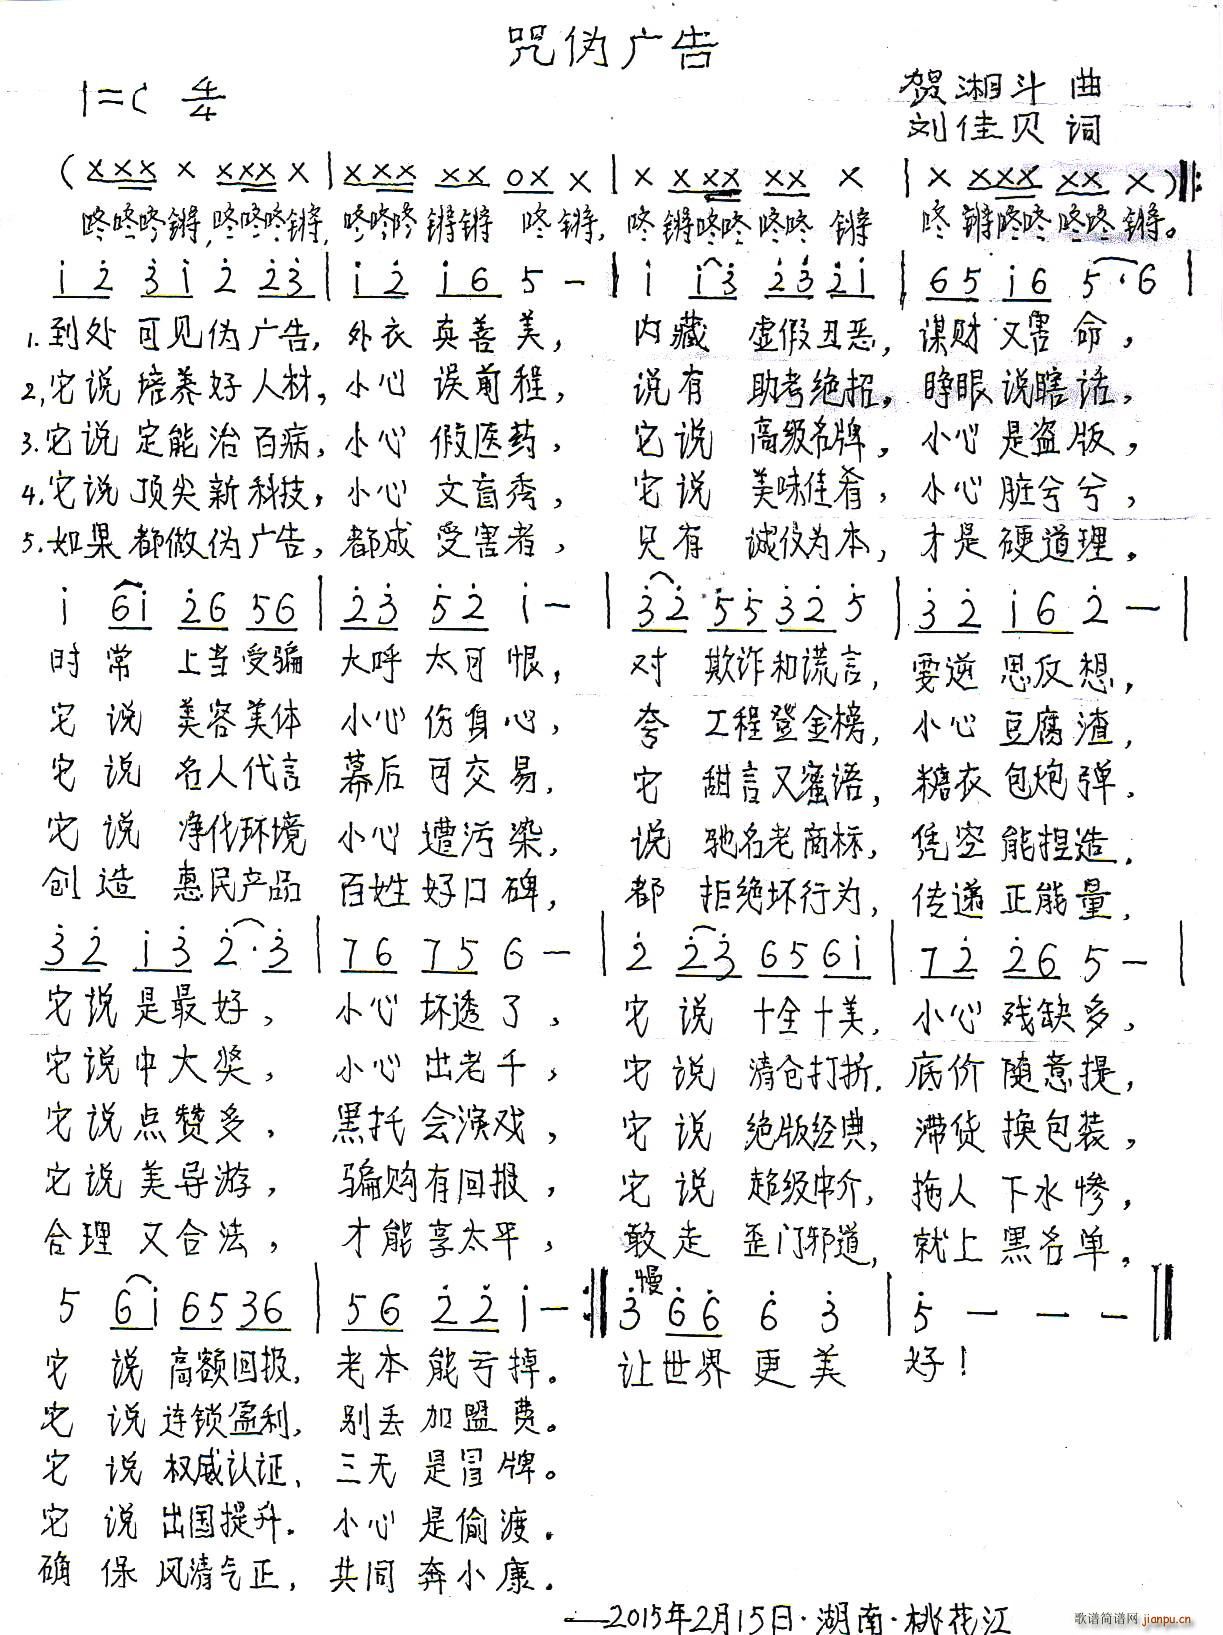 咒伪广告
1=C 4/4
贺湘斗 曲
刘佳贝 词
(XXX X XXX X | XXX XX 0X X | X XXX XX X | X XXX XX X)‖:
咚咚咚锵,咚咚咚锵, 咚咚咚 锵锵 咚 锵, 咚 锵咚咚 咚咚 锵 咚 锵咚咚 咚咚 锵。
i 2 3 i 2 2 3 | i 2 i 6 5 — | i i 3 2 3 2 i | 6 5 i 6 5 · 6 |
1.到处 可见伪广告, 外衣 真善美, 内藏 虚假丑恶, 谋财 又害 命,
2,它说 培养好人材, 小心 误前程, 说有 助考绝招, 睁眼 说瞎话,
3.它说 定能治百病, 小心 假医药, 它说 高级名牌, 小心 是盗版,
4.它说 顶尖新科技, 小心 文盲秀, 它说 美味佳肴, 小心 脏兮兮,
5.如果 都做伪广告, 都成 受害者, 只有 诚信为本, 才是 硬道理。
i 6 i 2 6 5 6 | 2 3 5 2 i — | 3 2 5 5 3 2 5 | 3 2 i 6 2 — |
时 常 上当受骗 大呼 太可恨, 对 欺诈和谎言, 要逆 思反想,
它 说 美容美体 小心 伤身心, 夸 工程登金榜, 小心 豆腐渣,
它 说 名人代言 幕后 可交易, 它 甜言又蜜语, 糖衣 包炮弹.
它 说 净化环境 小心 遭污染, 说 驰名老商标, 凭空 能捏造.
创 造 惠民产品 百姓 好口碑, 都 拒绝坏行为, 传递 正能量.
3 2 i 3 2 · 3 | 7 6 7 5 6 — | 2 2 3 6 5 6 i | 7 2 2 6 5 — |
它说 是最好, 小心 坏透了, 它 说 十全十美, 小心 残缺多,
它说 中大奖, 小心 出老千, 它 说 清仓打折, 底价 随意提,
它说 点赞多, 黑托 会演戏, 它 说 绝版经典, 滞货 换包装,
它说 美导游, 骗购 有回报, 它 说 超级中介, 拖人 下水惨,
合理 又合法, 才能 享太平, 敢 走 歪门邪道, 就上 黑名单。
慢
5 6 i 6 5 3 6 | 5 6 2 2 i — :‖ 3 6 6 6 3 | 5 — — — ‖
它 说 高额回报, 老本 能亏掉。 让世界 更 美 好!
它 说 连锁盈利, 别丢 加盟费。
它 说 权威认证, 三无 是冒牌。
它 说 出国提升. 小心 是偷渡.
确 保 风清气正, 共同 奔小康.
——2015年2月15日·湖南·桃花江
歌谱简谱网 jianpu.cn